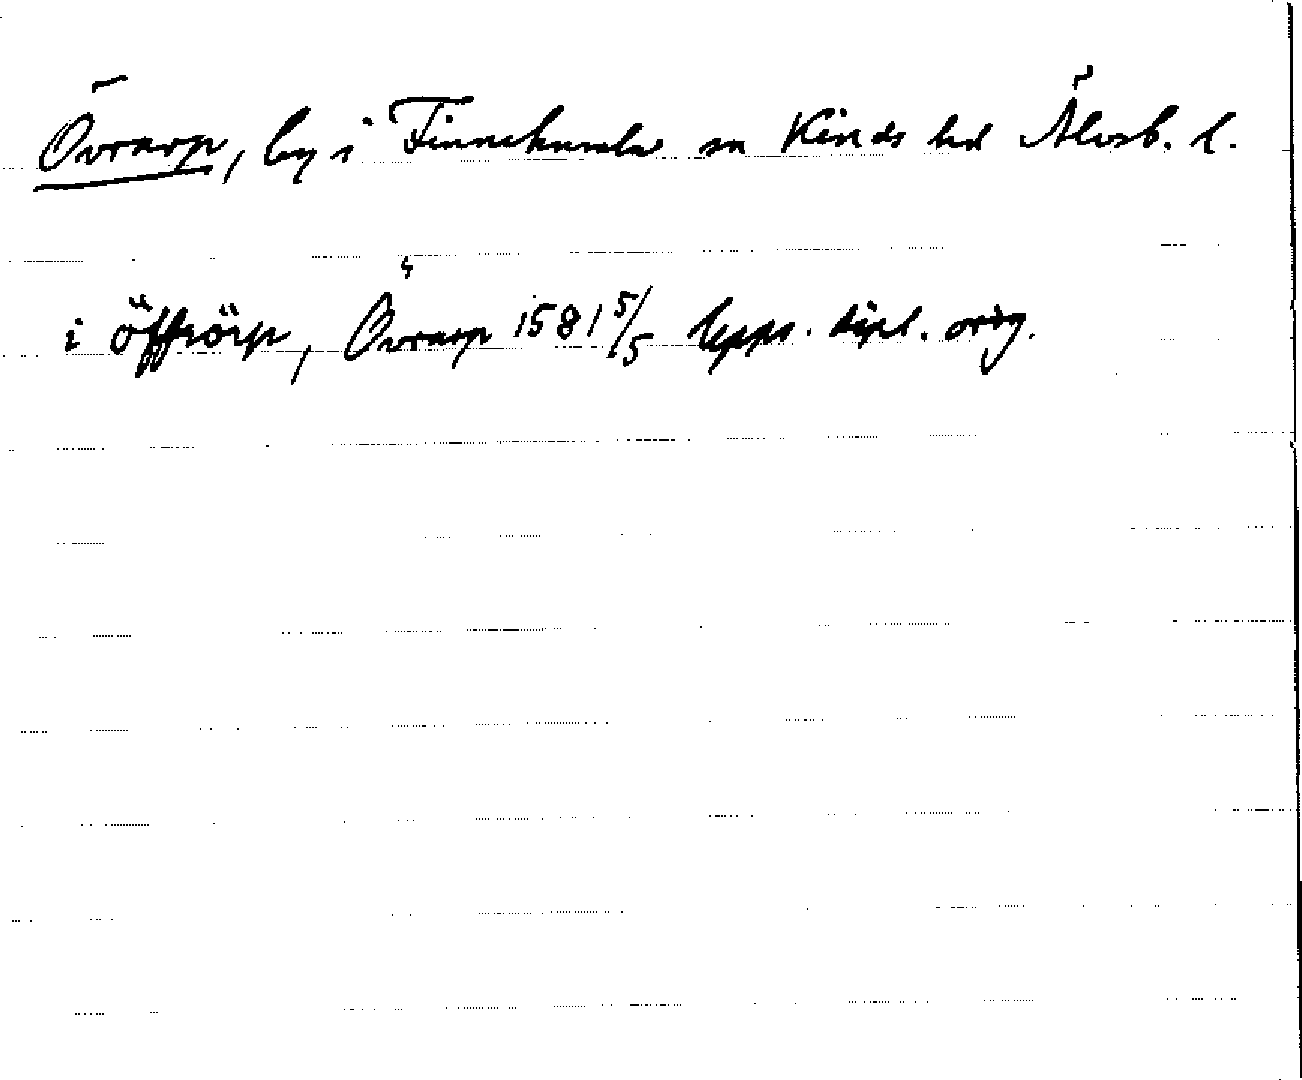 Övrarp, by i Finnekumla sn Kinds hd Älvsb. l.
i öffrörp, Övrarp 1581 5/5 Upps. dipl. orig.